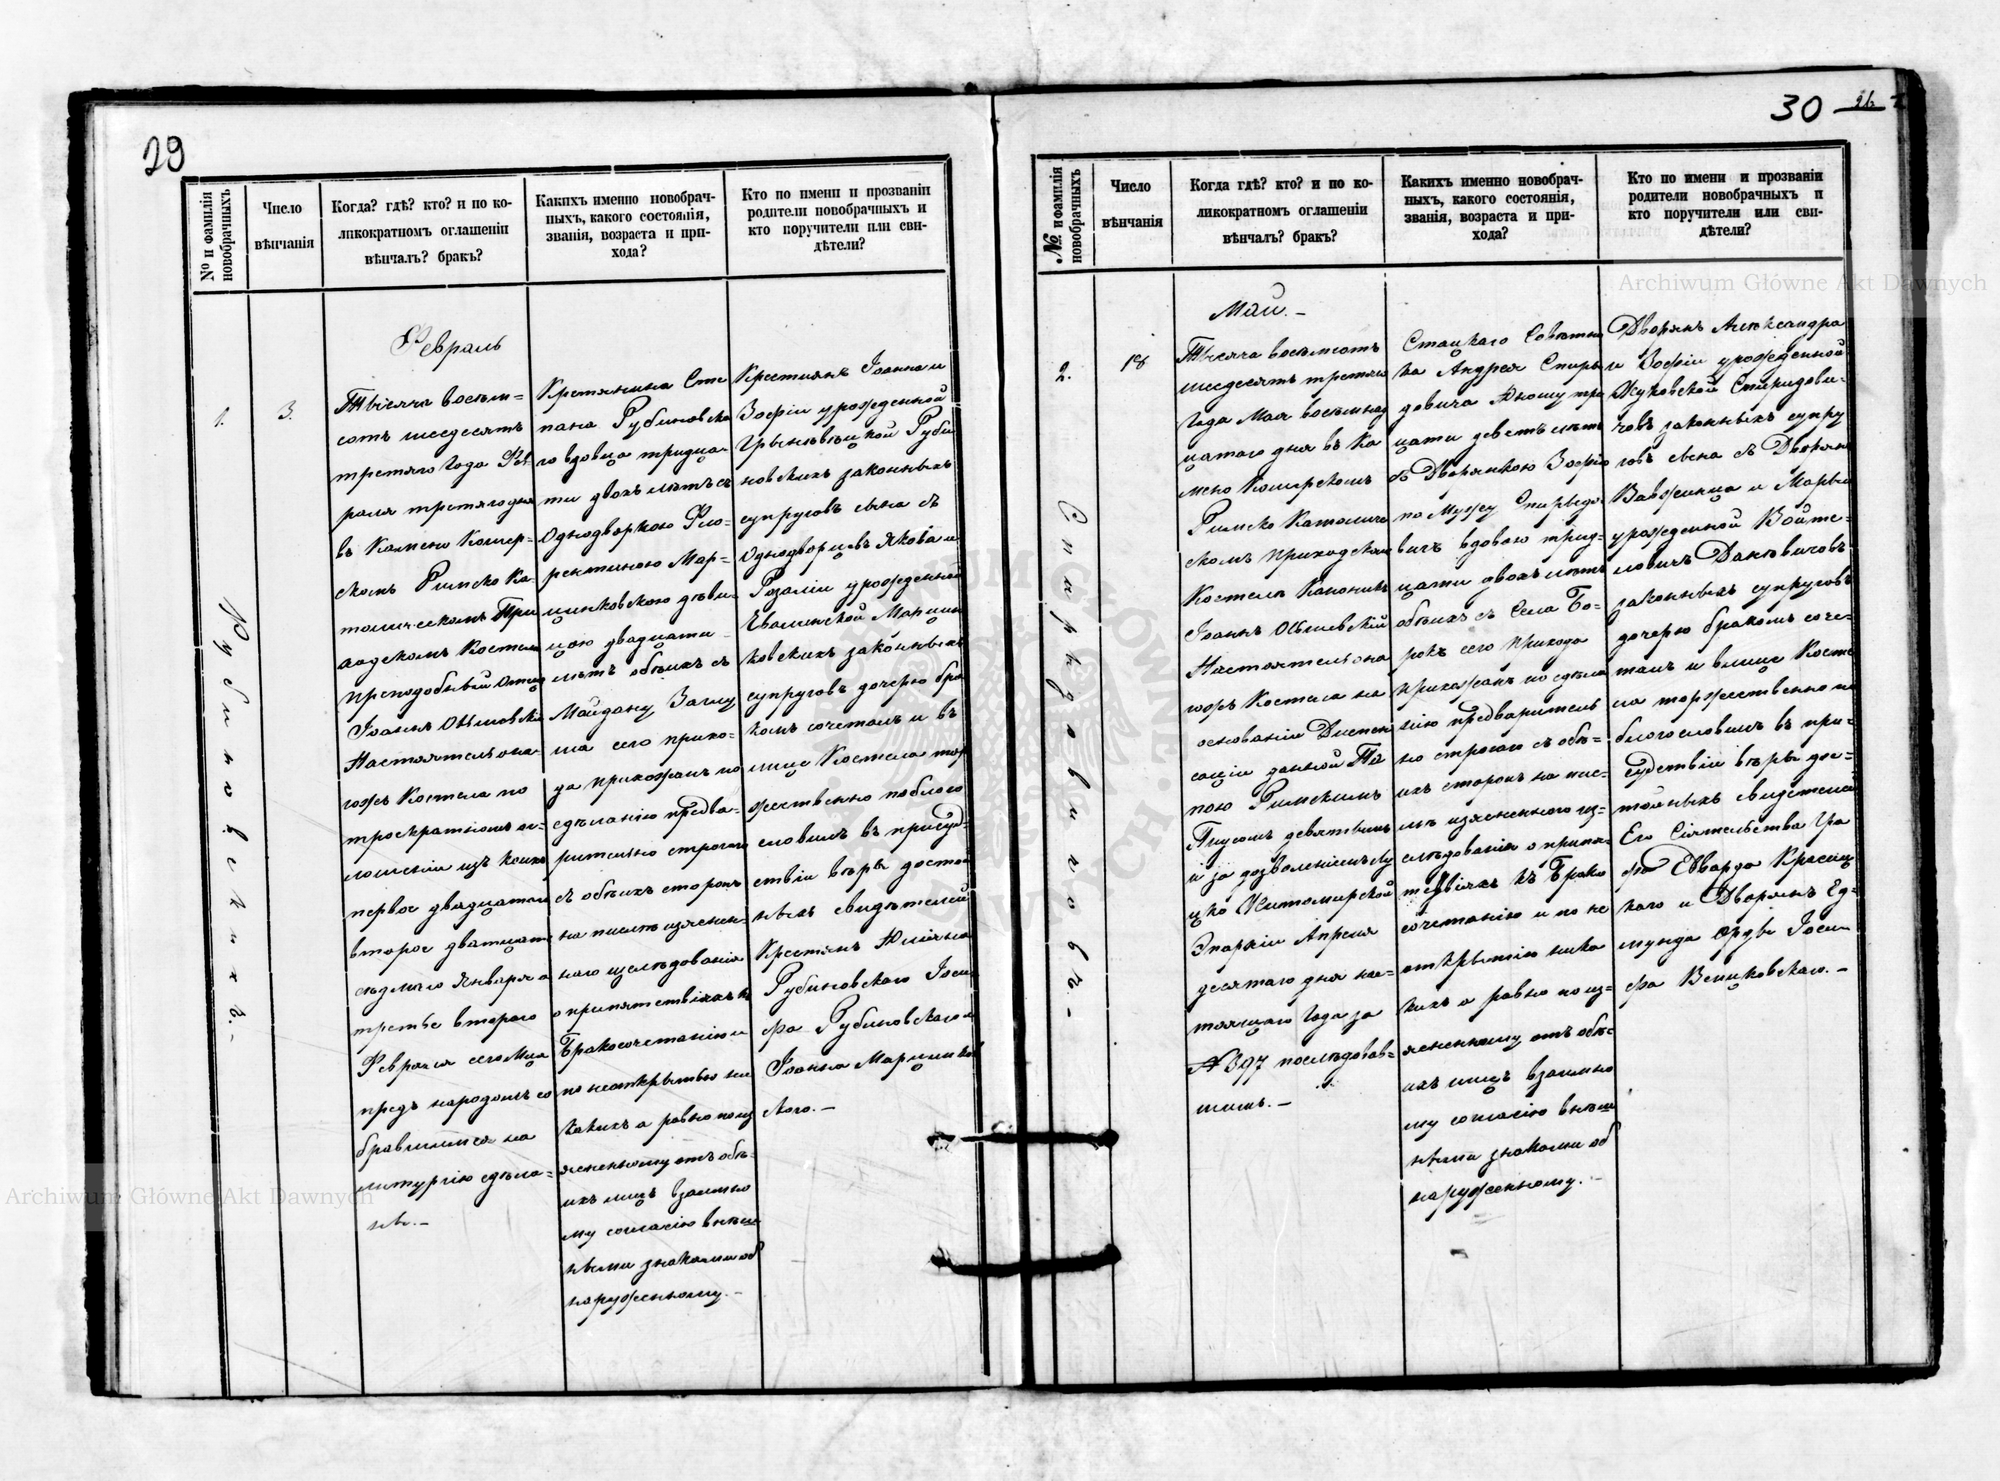 29
№ и фамилія новобрачныхъ
Число вѣнчанія
Когда? гдѣ? кто? и по ко-
ликократномъ оглашеніи
вѣнчалъ? бракъ?
Какихъ именно новобрач-
ныхъ, какого состоянія,
званія, возраста и при-
хода?
Кто по имени и прозванію
родители новобрачныхъ и
кто поручители или сви-
дѣтели?
1.
Рубиновскихъ.-
3.
Февраль
Тысяча восемь-
сотъ шесдесятъ
третяго Года Фев
раля третяго дня
въ Камено Кошир-
скомъ Римско Ка-
толическомъ При
ходскомъ Костелѣ
Преподобный Отецъ
Іоаннъ
Настоятель она
гожъ Костела по
троекратномъ ог-
лошеніи изъ коихъ
первое двадцатаго
второе дватцать
седмого Января а
третье второго
Февраля сего Мца
предъ народомъ со
бравшимся на
литургію сдѣла-
ны.-
Крестянина Сте
пана Рубиновска
го вдовца тридца-
ти двохъ лѣтъ съ
Однодворкою Фло-
рентиною Мар-
цинковскою дѣви-
цою двадцати
лѣтъ обѣихъ съ
Майдану
сего прихо-
да прихожанъ по
сдѣланію предва-
рительно строгаго
съ обѣихъ сторонъ
на писмѣ изяснен-
наго изслѣдованія
о припятствіяхъ къ
Бракосочетанію и
по неоткрытью ни
какихъ а равно по из
ясненному отъ обѣ-
ихъ лицъ взаимно
му согласію внѣш
ными знаками об
наруженному.-
Крестиянъ Іоанна и
Зофіи урожденной
Руби
новскихъ законныхъ
супруговъ сына съ
Однодворцовъ Якова и
Розаліи урожденной
Марцин
ковскихъ законныхъ
супруговъ дочерю бра
комъ сочеталъ и въ
лице Костела тор
жественно поблого
словилъ въ присуд-
ствіи вѣры достой
ныхъ свидѣтелей
Крестянъ
Рубиновского Іоси
фа Рубиновского и
Іоанна Марцинков
ского.-
30
№ и фамилія новобрачныхъ
Число вѣнчанія
Когда гдѣ? кто? и по ко-
ликократномъ оглашеніи
вѣнчалъ? бракъ?
Какихъ именно новобрач-
ныхъ, какого состоянія,
званія, возраста и при-
хода?
Кто по имени и прозванію
родители новобрачныхъ и
кто поручители или сви-
дѣтели?
2.
Спиридовичовъ.-
18
Май.-
Тысяча восемсотъ
шесдесятъ третяго
Года Мая восемнад
цатого дня въ Ка
мено Коширскомъ
Римско Католиче
скомъ Приходскомъ
Костелѣ Каноникъ
Іоаннъ
Настоятель она
гожъ Костела на
основаніи Диспен
саціи данной Па
пою Римскимъ
Піусомъ девятымъ
и за дозволеніемъ Лу
цко Житомирской
Эпархіи Апреля
десятаго дня на-
тоящаго Года за
№ 397 послѣдовав-
шимъ.-
Стацкаго Совѣтни
ка Андрея Спири
довича Юношу три
цати девять лѣтъ
съ Дворянкою Зофіею
по Мужу Спиридо
вичъ вдовою трид-
цати двохъ лѣтъ
обѣихъ съ Села Бо-
рокъ сего прихода
прихожанъ по сдѣла
нію предваритель
но строгаго съ обѣ-
ихъ сторонъ на пис-
мѣ изясненного из-
слѣдованія о припя-
тствіяхъ къ Брако
сочетанію и по не
открытію ника
кихъ а равно по из-
ясненному отъ обѣ-
ихъ лицъ взаимно
му согласію внѣш
ными знаками об
наруженному.-
Дворянъ Александра
и Зофіи урожденной
Жуковской Спиридови-
човъ законныхъ супру
говъ сына съ Дворянъ
Вавжинца и Марыи
урожденной Войте-
ховичъ Даневичовъ
законныхъ супруговъ
дочерю бракомъ соче-
талъ и влице Косте
ла торжественно по
блогословилъ въ при-
судствіи вѣры дос-
тойныхъ свидѣтелей
Его Сіятельства Гра
фа Едварда Красиц
каго и Дворянъ Ед-
мунда Орды Іоси-
фа Венцковскаго.-
Archiwum Główne Akt Dawnych
Archiwum Główne Akt Dawnych